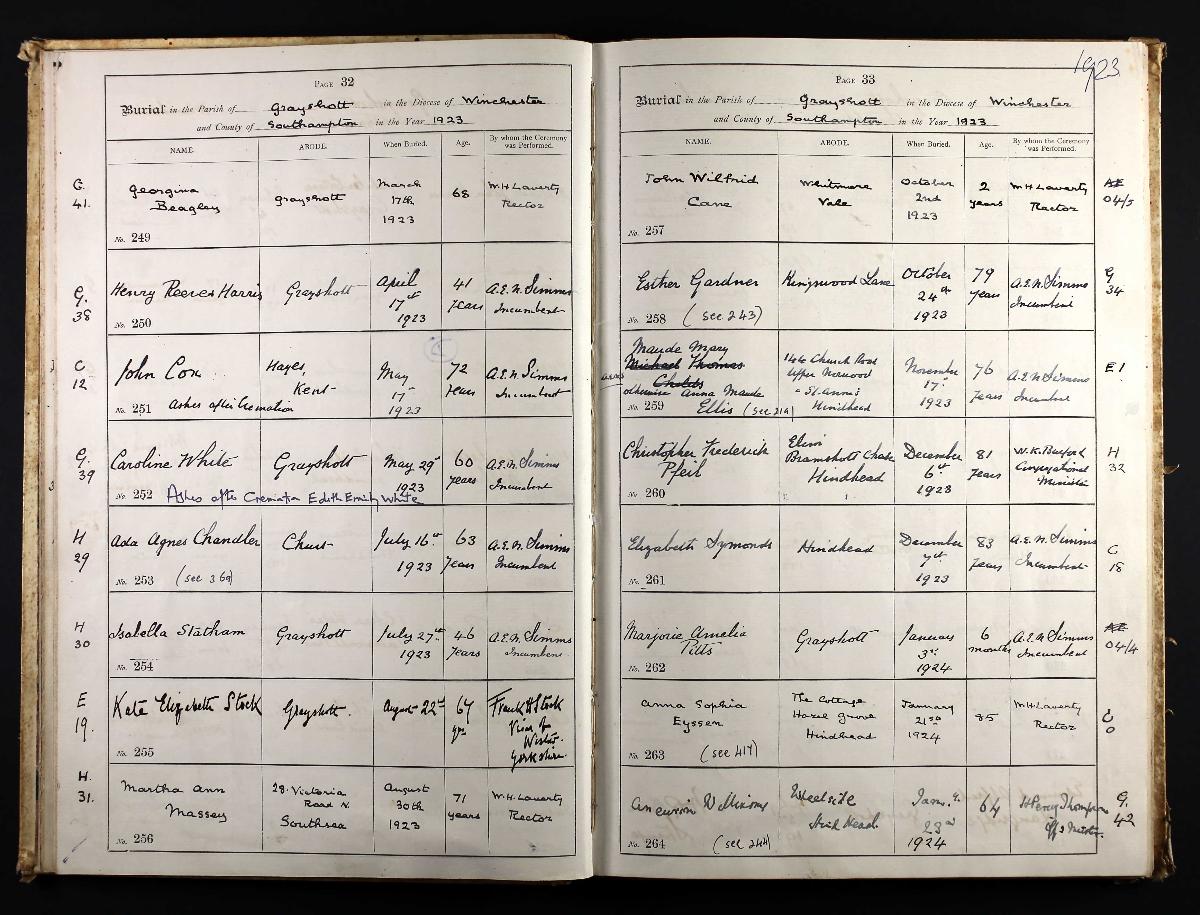 1923
PAGE 32
Burial in the Parish of Grayshott in the Diocese of Winchester
and County of Southampton in the Year 1923
NAME. ABODE. When Buried. Age. By whom the Ceremony was Performed.
G. 41.
Georgina Beagley
Grayshott
March 17th 1923
68
W.H. Laverty Rector
No. 249
G. 38
Henry Reeves Harris
Grayshott
April 17th 1923
41 years
A.E.N. Simms Incumbent
No. 250
C 12
John Cox
Hayes, Kent
May 17 1923
72 years
A.E.N. Simms Incumbent
No. 251 Ashes after Cremation
G. 39
Caroline White
Grayshott
May 29th 1923
60 years
A.E.N. Simms Incumbent
No. 252 Ashes after Cremation Edith Emily White
H 29
Ada Agnes Chandler
Churt
July 16th 1923
63 years
A.E.N. Simms Incumbent
No. 253 (see 369)
H 30
Isabella Statham
Grayshott
July 27th 1923
46 years
A.E.N. Simms Incumbent
No. 254
E 19.
Kate Elizabeth Stock
Grayshott.
August 22nd
67 yrs
Frank H Stock Vicar of Yorkshire.
No. 255
H. 31.
Martha Ann Massey
28. Victoria Road N. Southsea
August 30th 1923
71 years
W.H. Laverty Rector
No. 256
PAGE 33
Burial in the Parish of Grayshott in the Diocese of Winchester
and County of Southampton in the Year 1923
NAME. ABODE. When Buried. Age. By whom the Ceremony was Performed.
John Wilfrid Cane
Whitmore Vale
October 2nd 1923
2 years
W H Laverty Rector
AE 04/5
No. 257
Esther Gardner
Kingswood Lane
October 24th 1923
79 years
A.E.N. Simms Incumbent
G 34
No. 258 (see 243)
Maude Mary
Michael Thomas
Childs
otherwise Anna Maude Ellis (see 219)
144 Church Road Upper Norwood
St. Anna's Hindhead
November 17 1923
76 years
A.E.N. Simms Incumbent
E 1
No. 259
Christopher Frederick Pfeil
Elim Bramshott Chase Hindhead
December 6th 1923
81 years
W.K. Burford Congregational Minister
H 32
No. 260
Elizabeth Symonds
Hindhead
December 7th 1923
83 years
A.E.N. Simms Incumbent
C 18
No. 261
Marjorie Amelia Pitts
Grayshott
January 3rd 1924
6 months
A.E.N. Simms Incumbent
AE 04/4
No. 262
Anna Sophia Eyssen
The Cottage Hazel Grove Hindhead
January 21st 1924
85
W H Laverty Rector
No. 263 (see 417)
Aneurin Williams
Wheelside Hind Head.
Jany. 23rd 1924
64
H Percy Thompson
G. 42
No. 264 (see 244)